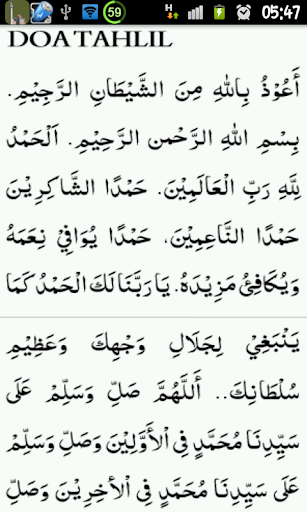 59 H 05:47
DOA TAHLIL
أَعُوْذُ بِاللهِ مِنَ الشَّيْطَانِ الرَّجِيْمِ.
بِسْمِ اللهِ الرَّحْمنِ الرَّحِيْمِ. اَلْحَمْدُ
لِلَّهِ رَبِّ الْعَالَمِيْنَ. حَمْدًا الشَّاكِرِيْنَ
حَمْدًا النَّاعِمِيْنَ. حَمْدًا يُوَافِيْ نِعَمَهُ
وَيُكَافِئُ مَزِيْدَهُ. يَا رَبَّنَا لَكَ الْحَمْدُ كَمَا
يَنْبَغِيْ لِجَلَالِ وَجْهِكَ وَعَظِيْمِ
سُلْطَانِكَ.. أَللَّهُمَّ صَلِّ وَسَلِّمْ عَلَى
سَيِّدِنَا مُحَمَّدٍ فِى اْلأَوَّلِيْنَ وَصَلِّ وَسَلِّمْ
عَلَى سَيِّدِنَا مُحَمَّدٍ فِى اْلأخِرِيْنَ وَصَلِّ